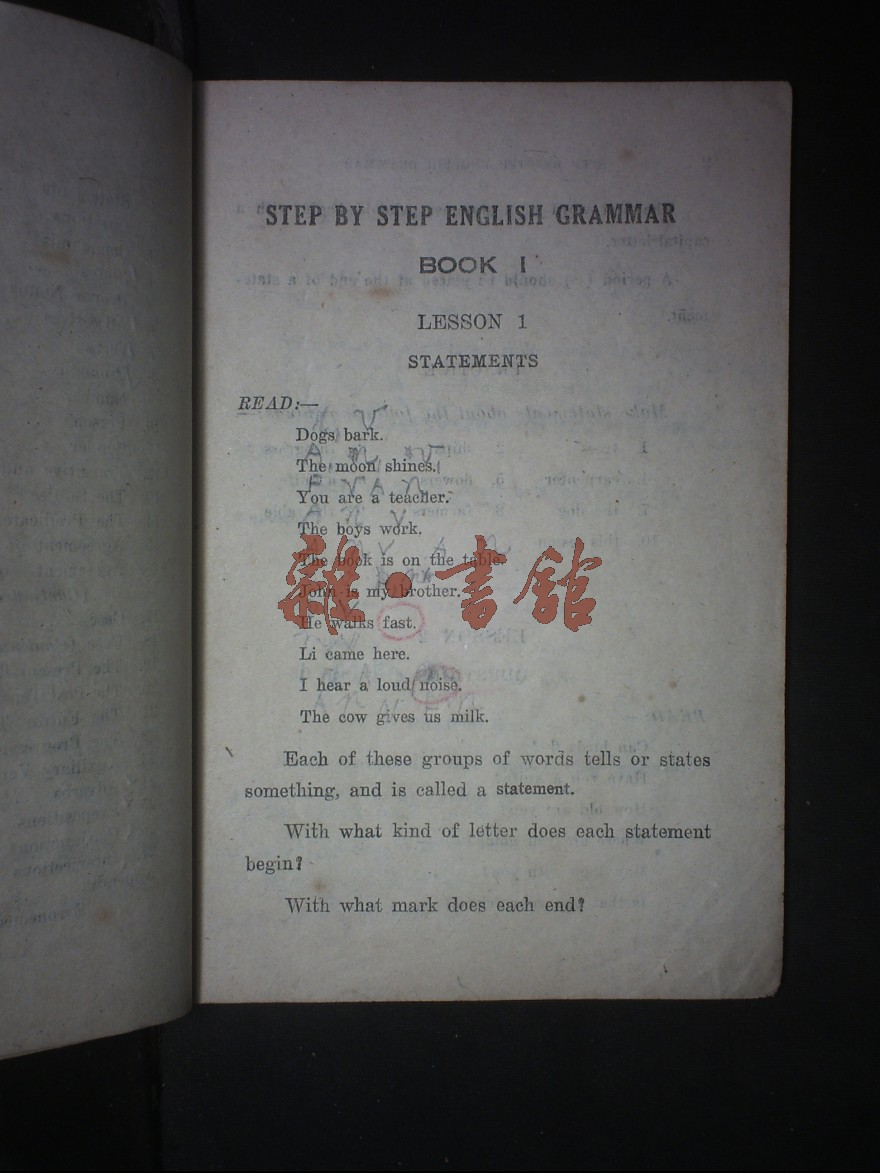 STEP BY STEP ENGLISH GRAMMAR
BOOK I
LESSON 1
STATEMENTS
READ:—
Dogs bark.
The moon shines.
You are a teacher.
The boys work.
The book is on the table.
John is my brother.
He walks fast.
Li came here.
I hear a loud noise.
The cow gives us milk.
Each of these groups of words tells or states
something, and is called a statement.
With what kind of letter does each statement
begin?
With what mark does each end?
雜·書館